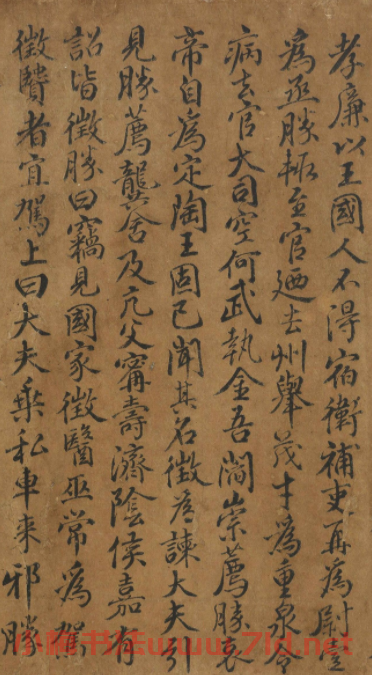 孝廉以王國人不得宿衛補吏再為尉壹
為丞勝輒至官廼去州舉茂才為重泉令
病去官大司空何武執金吾閻崇薦勝哀
帝自為定陶王固已聞其名徵為諫大夫引
見勝薦龔舍及亢父甯壽濟陰侯嘉有
詔皆徵勝曰竊見國家徵醫巫常為駕
徵賢者宜駕上曰大夫乘私車來邪勝
书法www.7ld.net